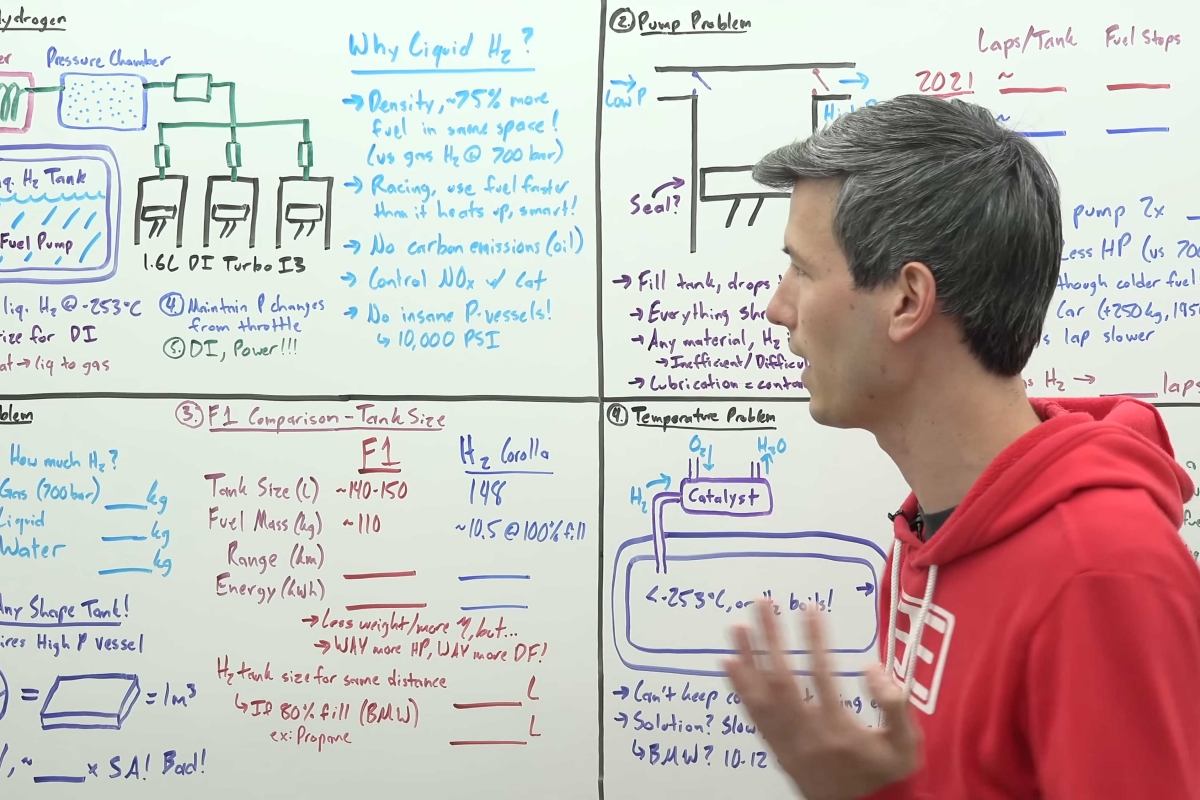 Hydrogen
Pressure Chamber
liq. H₂ Tank
Fuel Pump
1.6L DI Turbo I3
liq. H₂ @ -253°C
size for DI
at → liq to gas
④ Maintain P changes
from throttle
⑤ DI, Power!!!
Why Liquid H₂?
→ Density, ~75% more
fuel in same space!
(vs gas H₂ @ 700 bar)
→ Racing, use fuel faster
than it heats up, smart!
→ No carbon emissions (oil)
→ Control NOx w/ Cat
→ No insane P-vessels!
↳ 10,000 PSI
2. Pump Problem
Low P
Seal?
→ Fill tank, drops
→ Everything shr
→ Any material, H₂
→ Inefficient/Difficu
→ Lubrication = conta
Laps/Tank Fuel Stops
2021 ~ ___ ___
~ ___ ___
pump 2x
Less HP (vs 700
though colder fuel
Car (+250kg, 1950
lap slower
H₂ → ___ laps
oblem
How much H₂?
Gas (700 bar) ___ kg
Liquid ___ kg
Water ___ kg
Any Shape Tank!
ires High P vessel
= = 1m³
~ ___ x SA! Bad!
3. F1 Comparison - Tank Size
F1 H₂ Corolla
Tank Size (L) ~140-150 148
Fuel Mass (kg) ~110 ~10.5 @ 100% fill
Range (km) ___ ___
Energy (kWh) ___ ___
→ Less weight/more η, but...
→ WAY more HP, WAY more DF!
H₂ tank size for same distance ___ L
↳ If 80% fill (BMW) ___ L
ex: Propane
4. Temperature Problem
O₂ H₂O
H₂ → Catalyst
<-253°C, or H₂ boils!
→ Can't keep
→ Solution? Slow
↳ BMW? 10-12